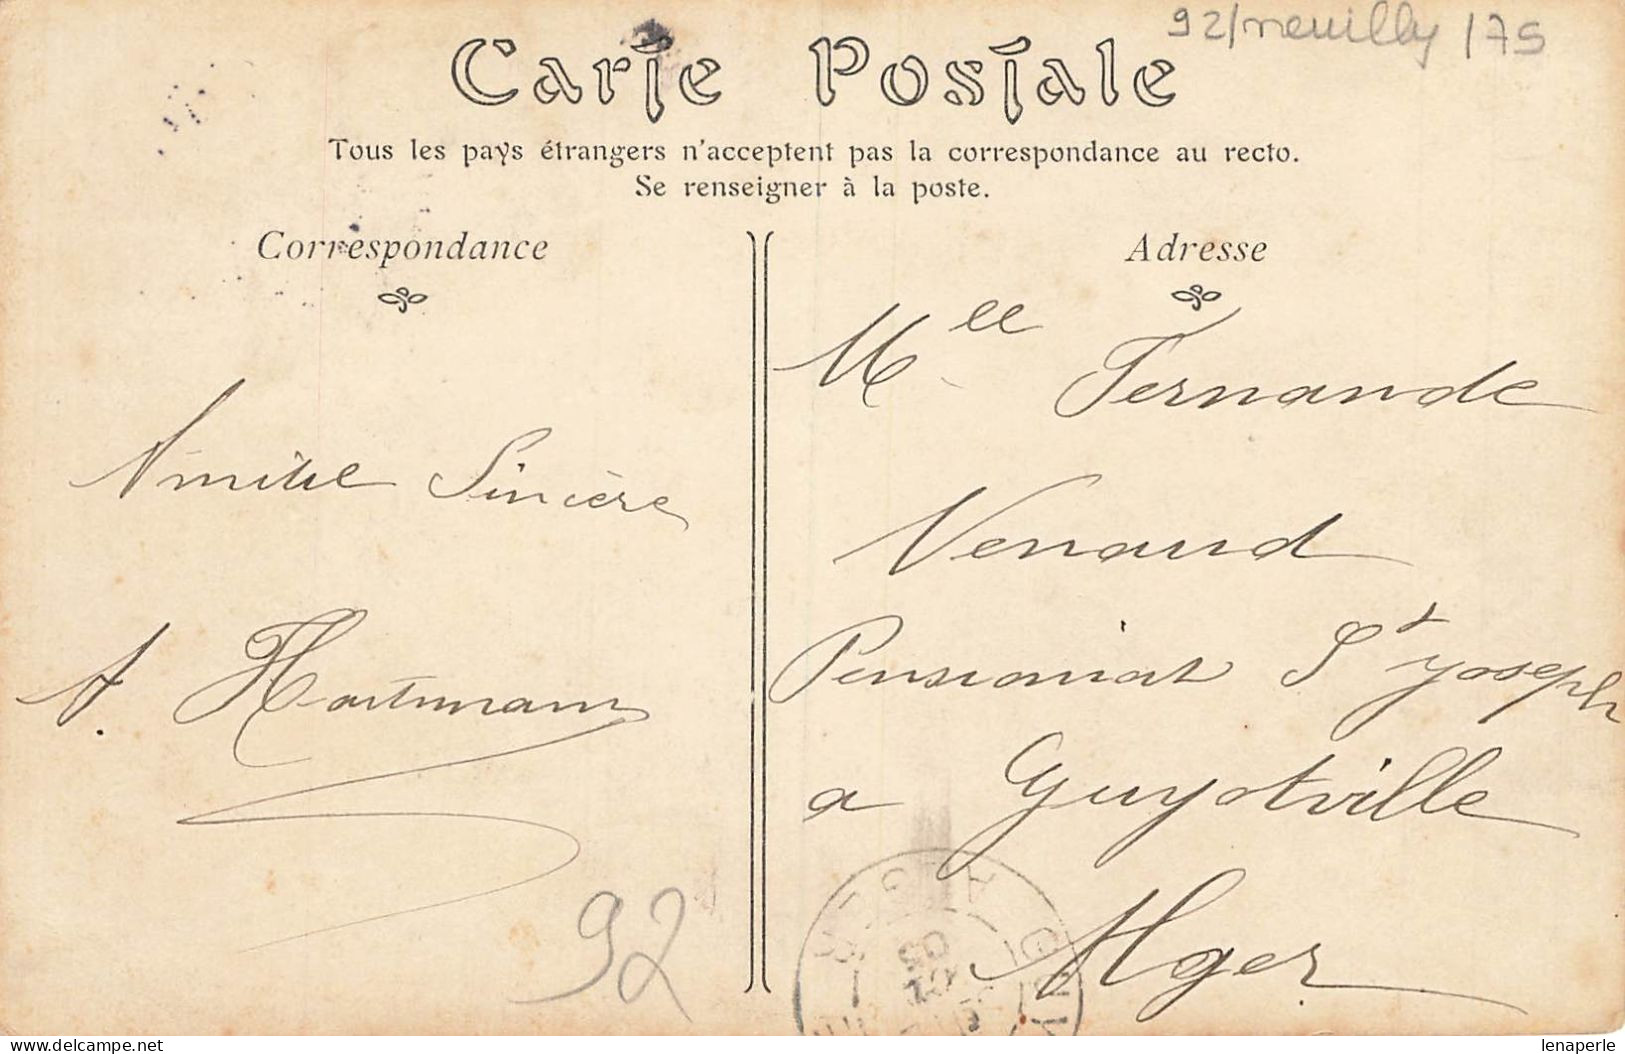 92/neuilly/75
Carte Postale
Tous les pays étrangers n'acceptent pas la correspondance au recto.
Se renseigner à la poste.
Correspondance
Amitié Sincère
A. Hartmann
92
Adresse
Mlle Fernande
Venaud
Pensionnat St Joseph
a Guyotville
Alger
ALGER
03
delcampe.net
lenaperle